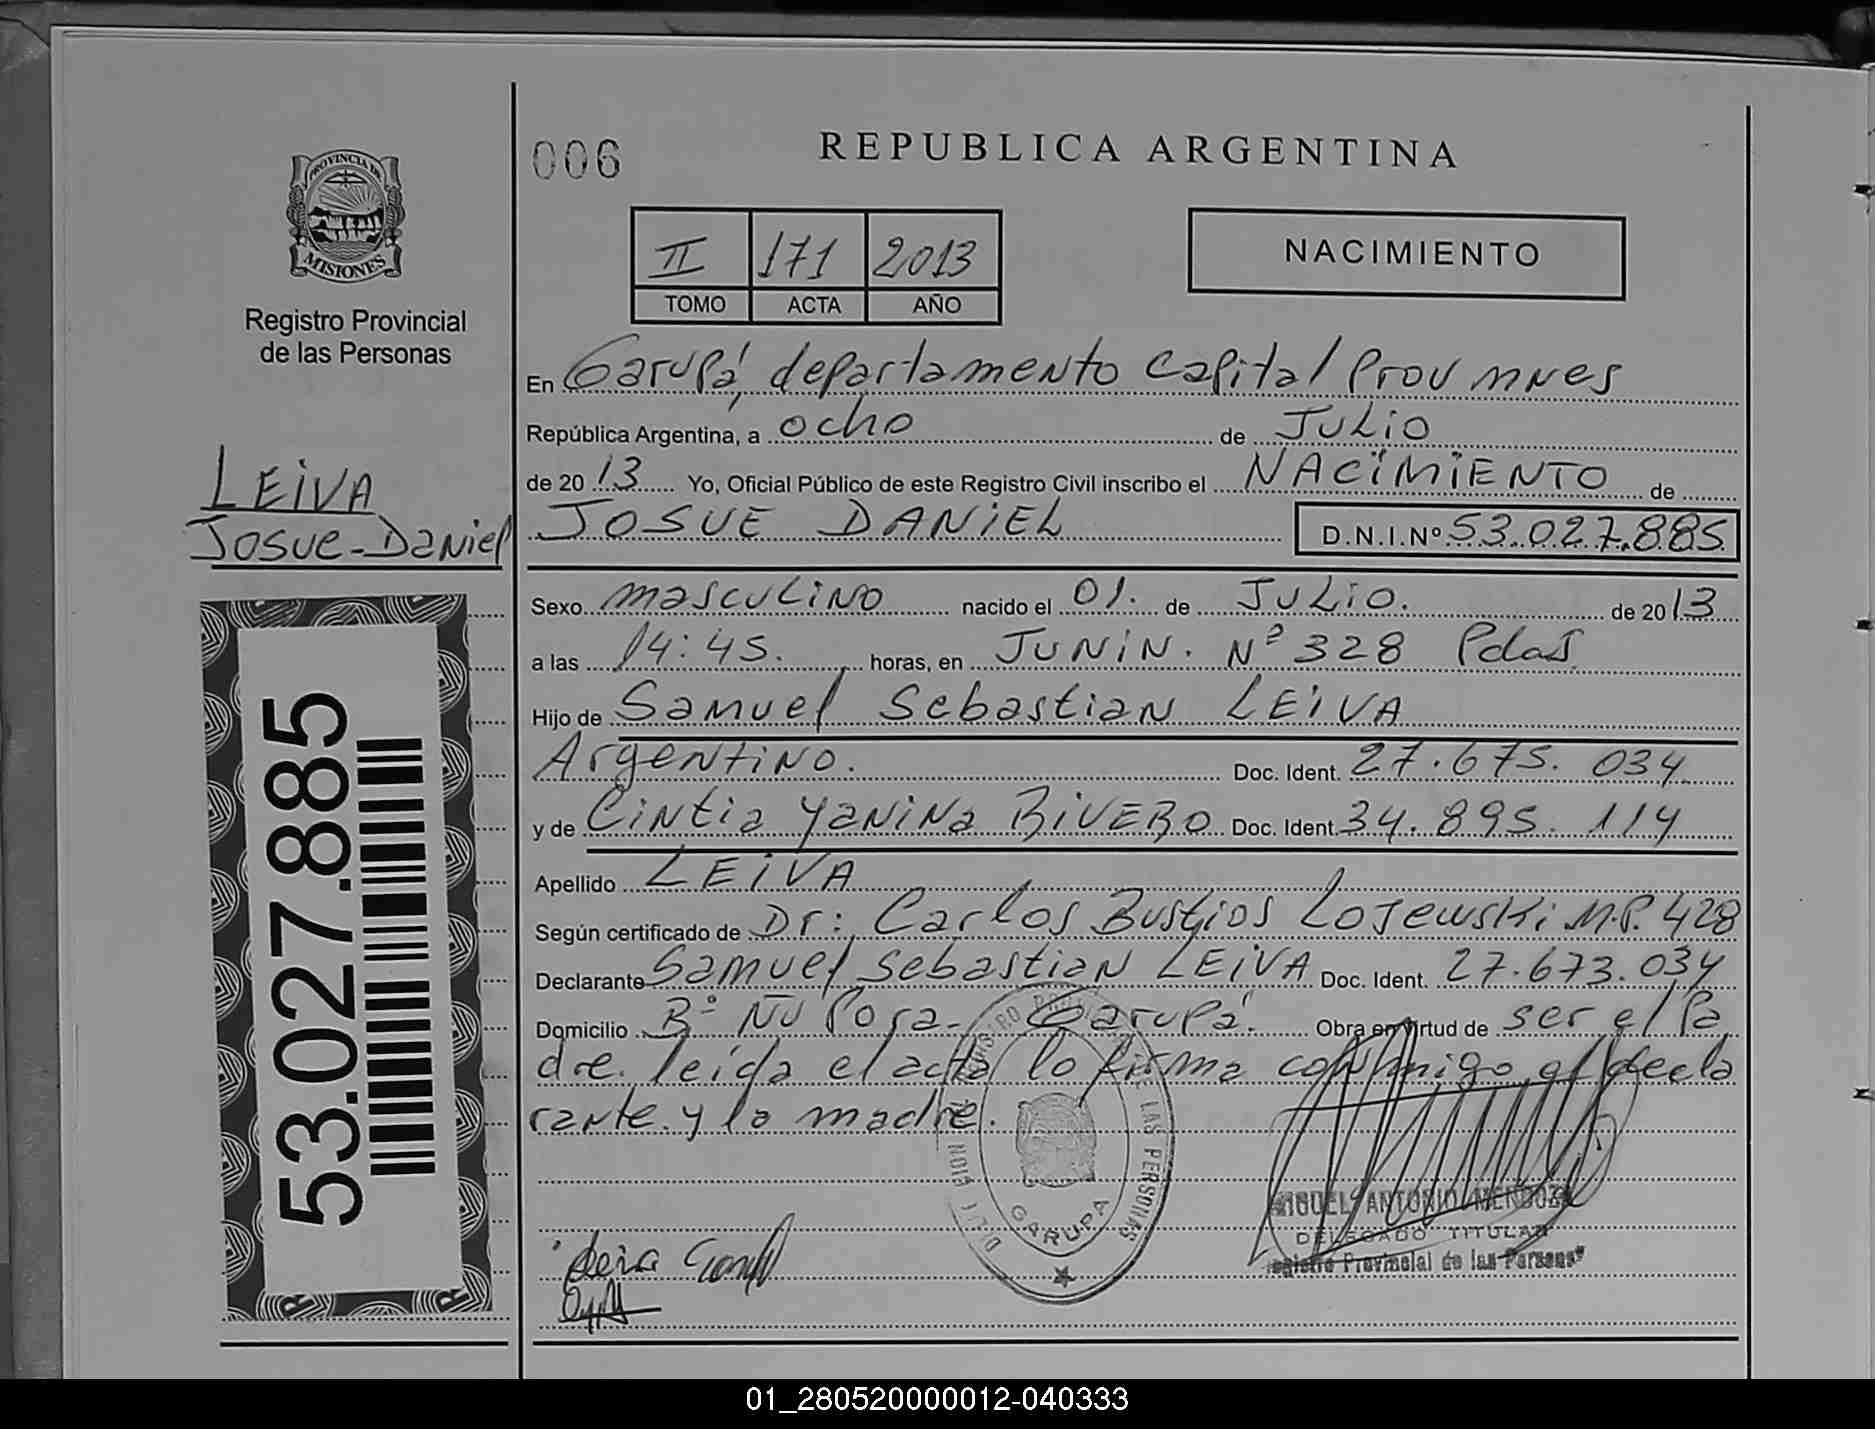 006
REPUBLICA ARGENTINA
PROVINCIA DE
MISIONES
Registro Provincial
de las Personas
II 171 2013
TOMO ACTA AÑO
NACIMIENTO
En Garupá, departamento Capital Prov mnes
República Argentina, a ocho de JULIO
de 2013 Yo, Oficial Público de este Registro Civil inscribo el NACIMIENTO de
LEIVA
Josue-Daniel
JOSUE DANIEL D.N.I.Nº 53.027.885
Sexo masculino nacido el 01. de JULIO. de 2013
a las 14:45. horas, en JUNIN. Nº 328 Pdas
Hijo de Samuel Sebastian LEIVA
Argentino. Doc. Ident. 27.675.034
y de Cintia Yanina RIVERO Doc. Ident. 34.895.114
Apellido LEIVA
Según certificado de Dr: Carlos Bustios Lojewski M.P. 428
Declarante Samuel Sebastian LEIVA Doc. Ident. 27.673.034
Domicilio Bº ÑU Pora- Garupá. Obra en virtud de ser el Pa
dre. leída el acta lo firma conmigo el decla
rante. y la madre.
53.027.885
DE LAS PERSONAS
GARUPA
MIGUEL ANTONIO MENDOZA
DELEGADO TITULAR
Registro Provincial de las Personas
01_280520000012-040333